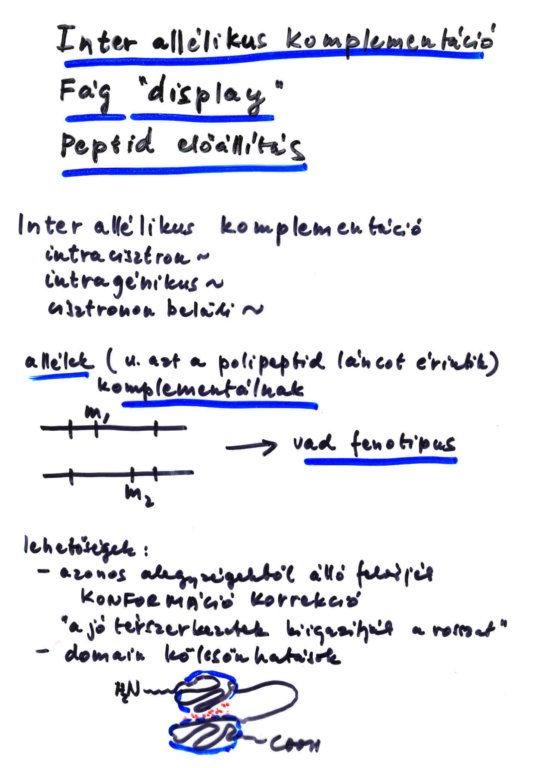 Inter allélikus komplementáció
Fág "display"
Peptid előállítás
Inter allélikus komplementáció
intracisztron ~
intragénikus ~
cisztronon belüli ~
allélek (u. azt a polipeptid láncot érintik)
komplementálnak
m1
→ vad fenotipus
m2
lehetőségek:
- azonos alegységekből álló fehérjék
KONFORMÁCIÓ KORREKCIÓ
"a jó térszerkezetek kiigazítják a rosszat"
- domain kölcsönhatások
H2N
COOH